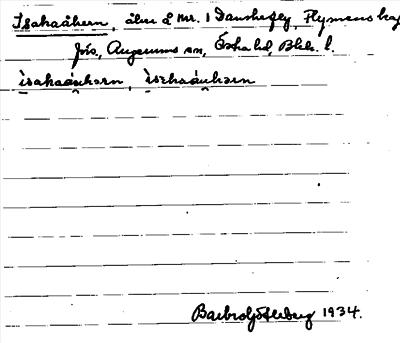 Isakaåkern, åker å Nr. 1 Danskefly, Flymens kap
förs., Augerums sn, Östra hd, Blek. l.
ìsahaåukərn, ìsəhaåukərn
Barbro Söderberg 1934.